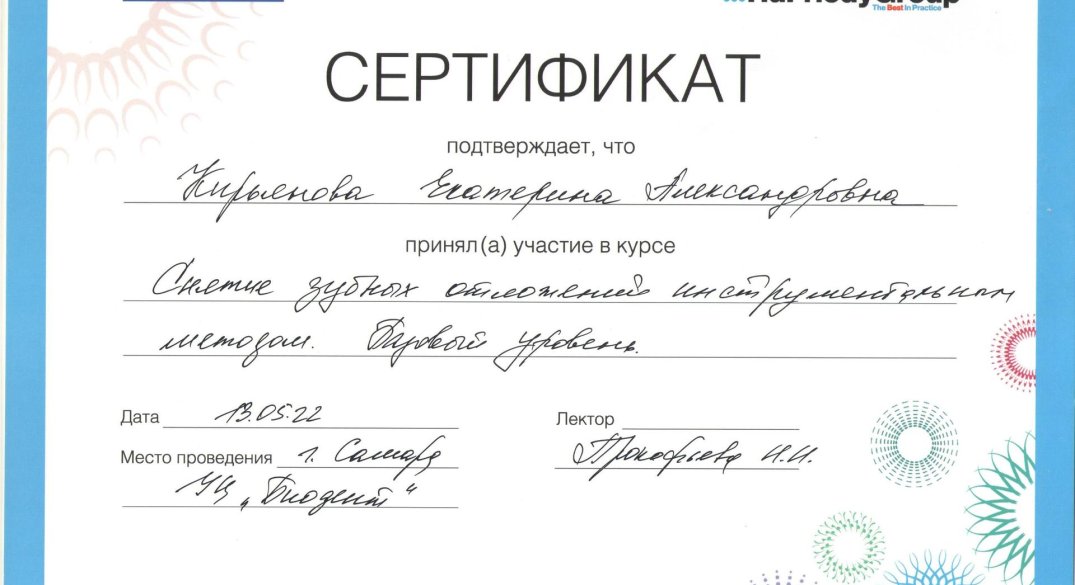 The Best In Practice
СЕРТИФИКАТ
подтверждает, что
Кирьянова Екатерина Александровна
принял(а) участие в курсе
Снятие зубных отложений инструментальным
методом. Базовый уровень.
Дата 13.05.22
Лектор
Место проведения г. Самара
Прокофьева Н.Н.
УЦ „Биодент“